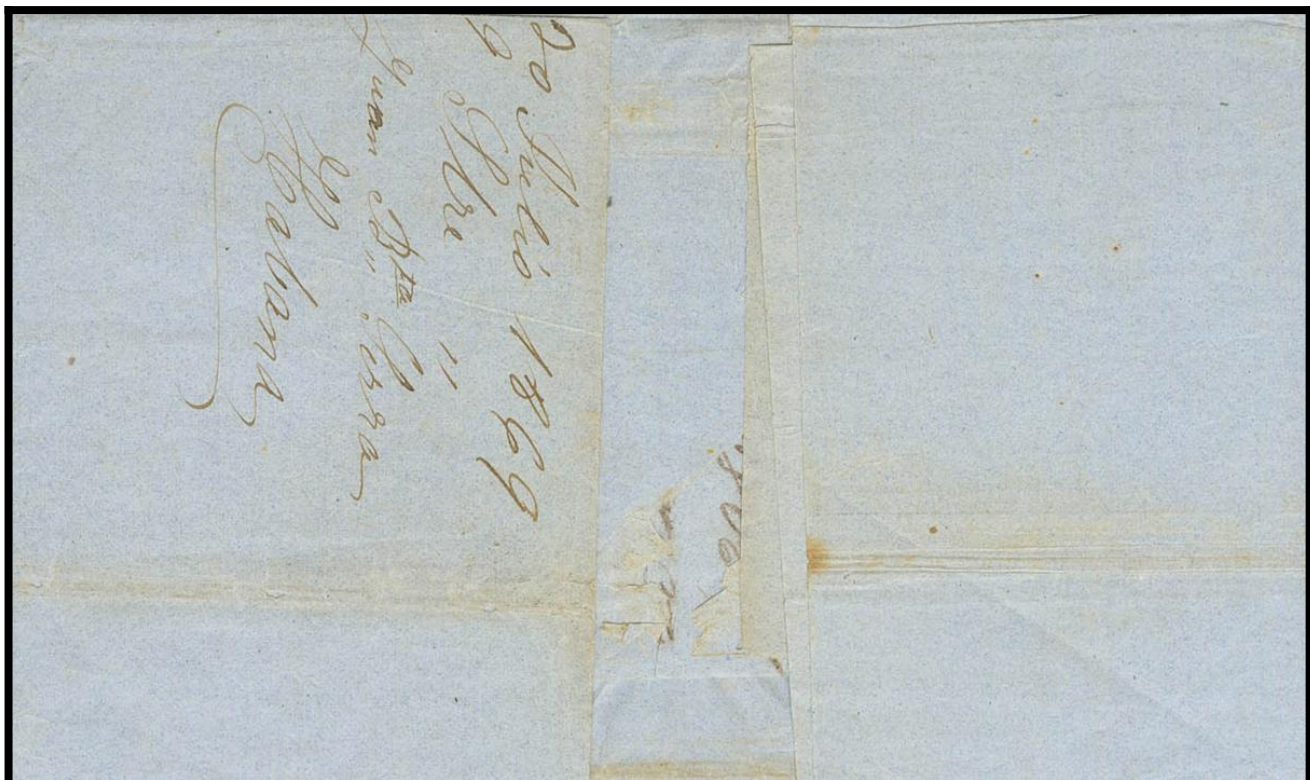 20 Julio 1869
9 Sbre "
Juan Bta Serra
Habana